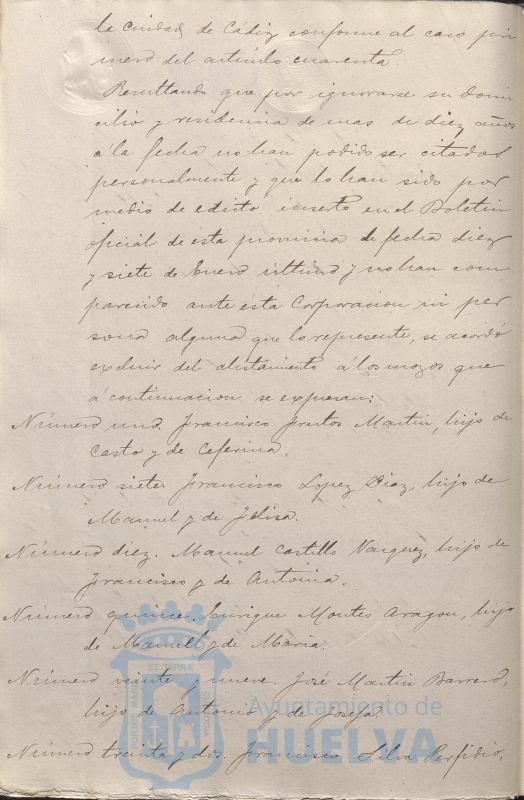 la Ciudad de Cádiz conforme al caso pri
mero del artículo cuarenta.
Resultando que por ignorarse su domi
cilio y residencia de mas de diez años
á la fecha no han podido ser citados
personalmente y que lo han sido por
medio de edicto inserto en el Boletin
oficial de esta provincia de fecha diez
y siete de Enero último y no han com
parecido ante esta Corporacion ni per
sona alguna que lo represente, se acordó
excluir del alistamiento á los mozos que
á continuacion se expresan:
Número uno. Francisco Frutos Martin, hijo de
Casto y de Ceferina.
Número siete. Francisco Lopez Diaz, hijo de
Manuel y de Felisa.
Número diez. Manuel Castillo Vazquez, hijo de
Francisco y de Antonia.
Número quince. Enrique Montes Aragon, hijo
de Manuel y de Maria.
Número veinte y nueve. José Martin Barrero,
hijo de Antonio y de Josefa.
Número treinta y dos. Francisco Silva
Ayuntamiento de
HUELVA
PORTUS MARIS
ET TERRÆ
CUSTODIA